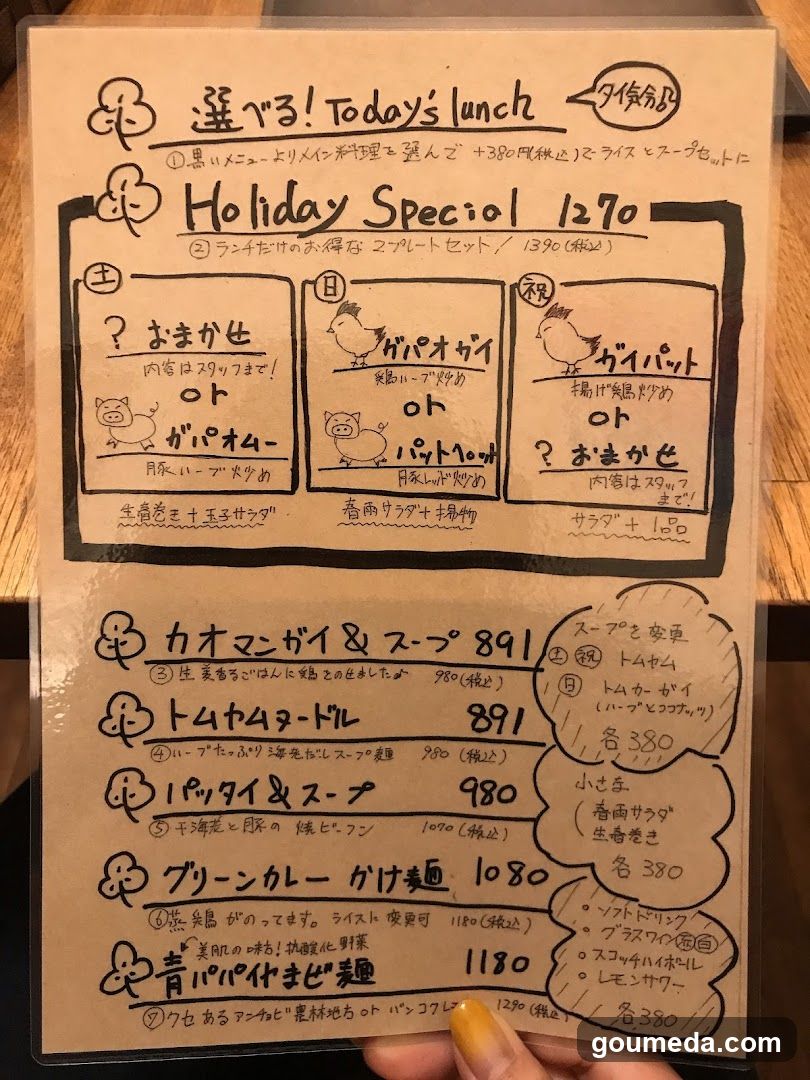 選べる！Today's lunch
タイ気分♪
①黒いメニューよりメイン料理を選んで +380円(税込)でライスとスープセットに
Holiday Special 1270
②ランチだけのお得な2プレートセット! 1390(税込)
土
? おまかせ
内容はスタッフまで!
or
ガパオムー
豚ハーブ炒め
生春巻き+玉子サラダ
日
ガパオガイ
鶏ハーブ炒め
or
パットペット
豚レッド炒め
春雨サラダ+揚物
祝
ガイパット
揚げ鶏炒め
or
? おまかせ
内容はスタッフ
まで!
サラダ+1品
カオマンガイ&スープ 891
③生姜香るごはんに鶏をのせました♪ 980(税込)
トムヤムヌードル 891
④ハーブたっぷり海老だしスープ麺 980(税込)
パッタイ&スープ 980
⑤干海老と豚の焼ビーフン 1070(税込)
グリーンカレーかけ麺 1080
⑥蒸鶏がのってます。ライスに変更可 1180(税込)
美肌の味方!抗酸化野菜
青パパイヤまぜ麺 1180
⑦クセあるアンチョビ農林地方or バンコクレ 1290(税込)
スープを変更
土 祝 トムヤム
日 トムカーガイ
(ハーブとココナッツ)
各380
小さな
春雨サラダ
生春巻き
各380
・ソフトドリンク
・グラスワイン赤白
・スコッチハイボール
・レモンサワー
各380
goumeda.com